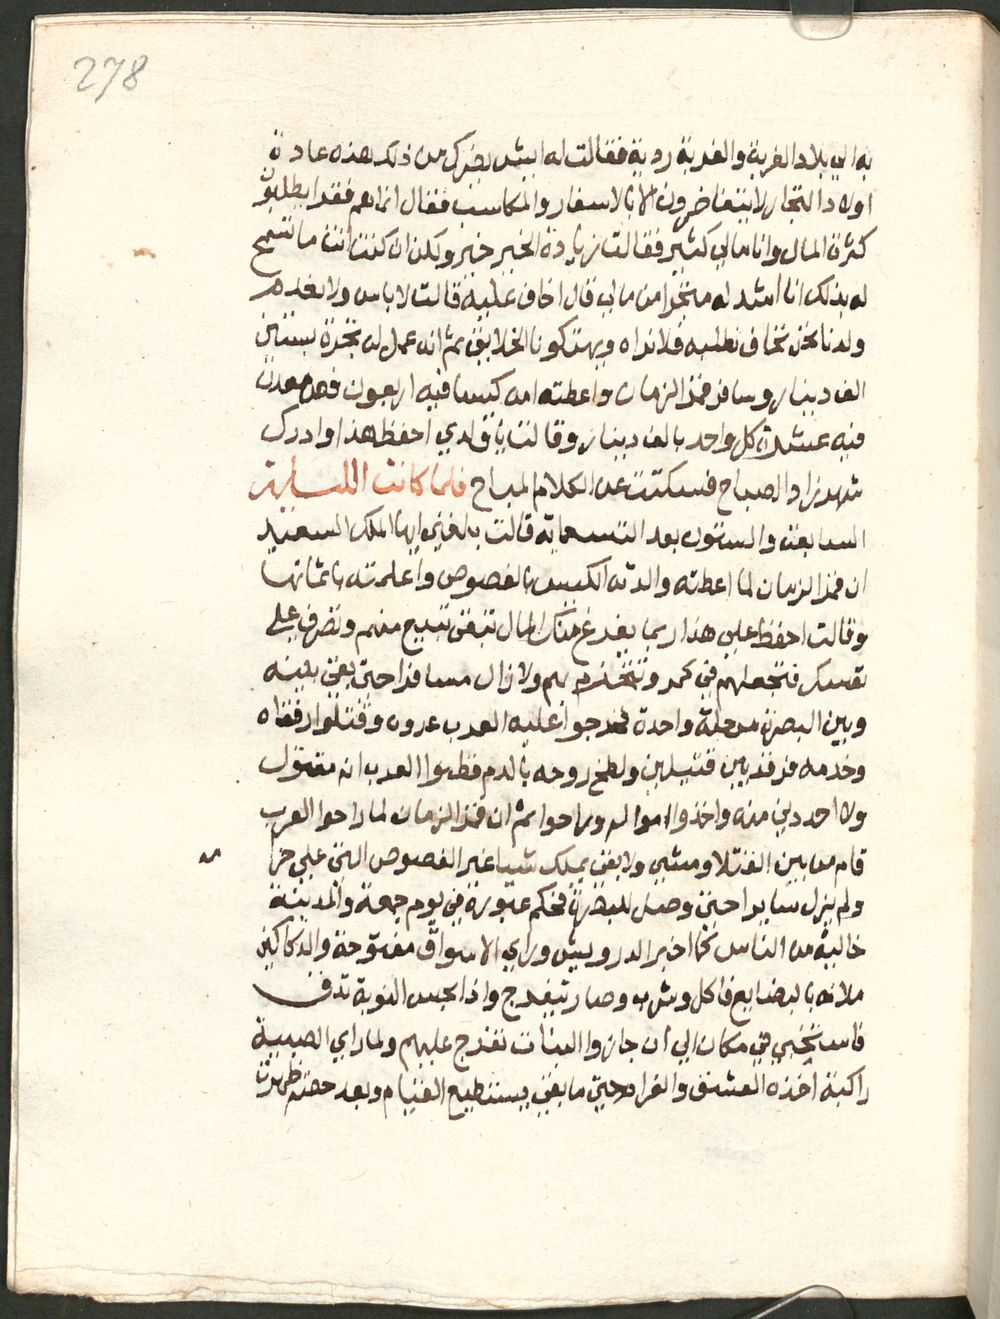 278
به الي بلاد الغربة والغربة ردية فقالت له ايش يضرك من ذلك هذه عادة
اولاد التجار لا يتفاخرون الا بالاسفار والمكاسب فقال انما هم فقرا يطلبون
كثرة المال وانا مالي كثير فقالت زيادة الخير خير ولكن ان كنت انت ما تسمح
له بذلك انا اشد له متجرا من مالي قال اخاف عليه قالت لا باس ولا نغدم
ولدنا نحن نخاف نطلبه فلا نراه ويهتكونا الخلايق ثم انه عمل له تجرة بستين
الف دينار وسافر قمر الزمان واعطته امه كيسا فيه اربعون فص معدن
فيه عشرة كل واحد بالف دينار وقالت يا ولدي احفظ هذا وادرك
شهرزاد الصباح فسكتت عن الكلام المباح فلما كانت الليلة
السابعة والستون بعد التسعماية قالت بلغني ايها الملك السعيد
ان قمر الزمان لما اعطته والدته الكيس بالفصوص واعلمته باثمانها
وقالت احفظ علي هذا ربما يفرغ منك المال تبقي تبيع منهم وتصرف علي
نفسك فتجعلهم في كمر وتتحزم بهم ولا زال مسافرا حتي بقي بينه
وبين البصرة مرحلة واحدة فخرجوا عليه العرب عروه وقتلوا رفقاه
وخدمه فرقد بين قتيلين ولطخ روحه بالدم فظنوا العرب انه مقتول
ولا احد دني منه واخذوا امواله وراحوا ثم ان قمر الزمان لما راحوا العرب
قام من بين القتلا ومشي ولا بقي يملك شيا غير الفصوص التي علي حزا
ولم يزل سايرا حتي وصل للبصرة فحكم عبوره في يوم جمعة والمدينة
خالية من الناس كما اخبر الدرويش وراي الاسواق مفتوحة والدكاكين
ملانه بالبضايع فاكل وشرب وصار يتفرج واذا بحس النوبة تدق
فاستخبي في مكان الي ان جازوا البنات تفرج عليهم ولما راي الصبية
راكبة اخذه العشق والغرام حتي ما بقي يستطيع القيام وبعد حصة ظهرت